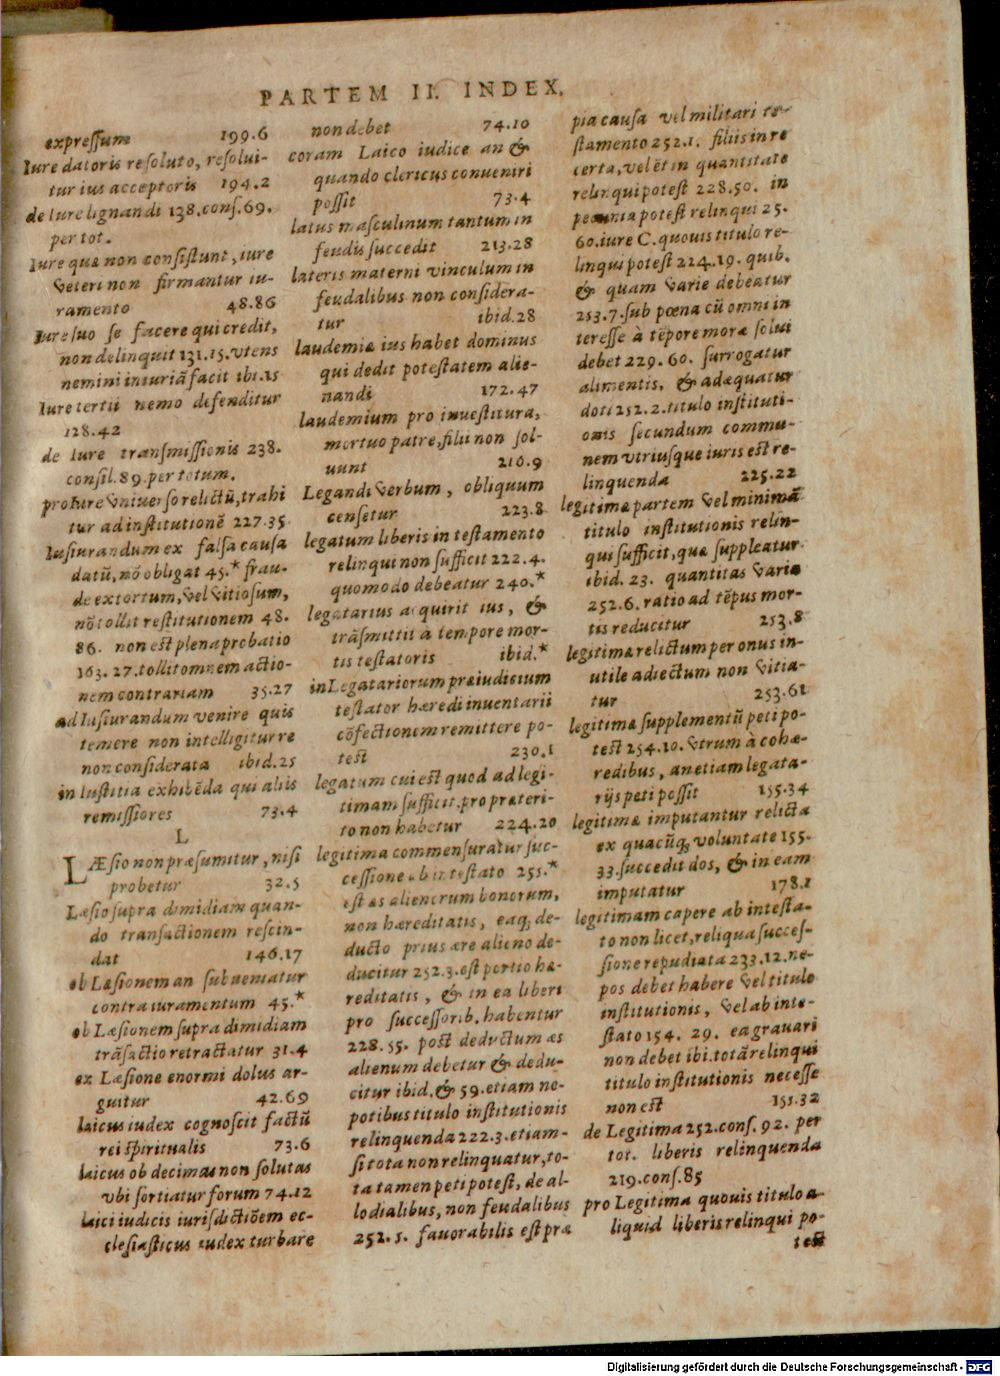 PARTEM II. INDEX.
expressum 199.6
Iure datoris resoluto, resolui-
tur ius acceptoris 194.2
de Iure lignandi 138. cons. 69.
per tot.
Iure quæ non consistunt, iure
veteri non firmantur iu-
ramento 48.86
Iure suo se facere qui credit,
non delinquit 131.15. vtens
nemini iniuriã facit ibi.15
Iure tertii nemo defenditur
128.42
de Iure transmissionis 238.
consil. 89. per totum.
pro Iure vniuerso relictũ, trahi
tur ad institutionẽ 227.35
Iusiurandum ex falsa causa
datũ, nõ obligat 45.* frau-
de extortum, vel vitiosum,
nõ tollit restitutionem 48.
86. non est plena probatio
163. 27. tollit omnem actio-
nem contrariam 35.27
ad Iusiurandum venire quis
temere non intelligitur re
non considerata ibid.25
in Iustitia exhibẽda qui aliis
remissiores 73.4
L
LÆsio non præsumitur, nisi
probetur 32.5
Læsio supra dimidiam quan-
do transactionem rescin-
dat 146.17
ob Læsionem an subueniatur
contra iuramentum 45.*
ob Læsionem supra dimidiam
trãsactio retractatur 31.4
ex Læsione enormi dolus ar-
guitur 42.69
laicus iudex cognoscit factũ
rei spiritualis 73.6
laicus ob decimas non solutas
vbi sortiatur forum 74.12
laici iudicis iurisdictiõem ec-
clesiasticus iudex turbare
non debet 74.10
coram Laico iudice an &
quando clericus conueniri
possit 73.4
latus masculinum tantum in
feudis succedit 213.28
lateris materni vinculum in
feudalibus non considera-
tur ibid.28
laudemiæ ius habet dominus
qui dedit potestatem alie-
nandi 172.47
laudemium pro inuestitura,
mortuo patre, filii non sol-
uunt 216.9
Legandi verbum, obliquum
censetur 223.8
legatum liberis in testamento
relinqui non sufficit 222.4.
quomodo debeatur 240.*
legatarius acquirit ius, &
trãsmittit à tempore mor-
tis testatoris ibid.*
in Legatariorum præiudicium
testator hæredi inuentarii
cõfectionem remittere po-
test 230.1
legatum cui est quod ad legi-
timam sufficit, pro præteri-
to non habetur 224.20
legitima commensuratur suc-
cessione ab intestato 255.*
est æs alienorum bonorum,
non hæreditatis, eaq; de-
ducto prius ære alieno de-
ducitur 252.3. est portio hæ-
reditatis, & in ea liberi
pro successorib. habentur
228.55. post deductum æs
alienum debetur & dedu-
citur ibid. & 59. etiam ne-
potibus titulo institutionis
relinquenda 222.3. etiam-
si tota non relinquatur, to-
ta tamen peti potest, de al-
lodialibus, non feudalibus
252.5. fauorabilis est præ
pia causa vel militari te-
stamento 252.1. filiis in re
certa, vel ẽt in quantitate
relinqui potest 228.50. in
pecunia potest relinqui 25.
60. iure C. quouis titulo re-
linqui potest 224.19. quib.
& quam varie debeatur
253.7. sub pœna cũ omni in
teresse à tẽpore moræ solui
debet 229.60. surrogatur
alimentis, & adæquatur
doti 252.2. titulo instituti-
onis secundum commu-
nem vtriusque iuris est re-
linquenda 225.22
legitimæ partem vel minimã
titulo institutionis relin-
qui sufficit, quæ suppleatur
ibid. 23. quantitas varie
252.6. ratio ad tẽpus mor-
tis reducitur 253.8
legitimæ relictum per onus in-
utile adiectum non vitia-
tur 253.61
legitimæ supplementũ peti po-
test 254.10. vtrum à cohæ-
redibus, an etiam legata-
rijs peti possit 155.34
legitimæ imputantur relicta
ex quacũq; voluntate 155.
33. succedit dos, & in eam
imputatur 178.1
legitimam capere ab intesta-
to non licet, reliqua succes-
sione repudiata 233.12. ne-
pos debet habere vel titulo
institutionis, vel ab inte-
stato 154. 29. ea grauari
non debet ibi. totã relinqui
titulo institutionis necesse
non est 151.32
de Legitima 252. cons. 92. per
tot. liberis relinquenda
219. cons. 85
pro Legitima quouis titulo a-
liquid liberis relinqui po-
test
Digitalisierung gefördert durch die Deutsche Forschungsgemeinschaft - DFG